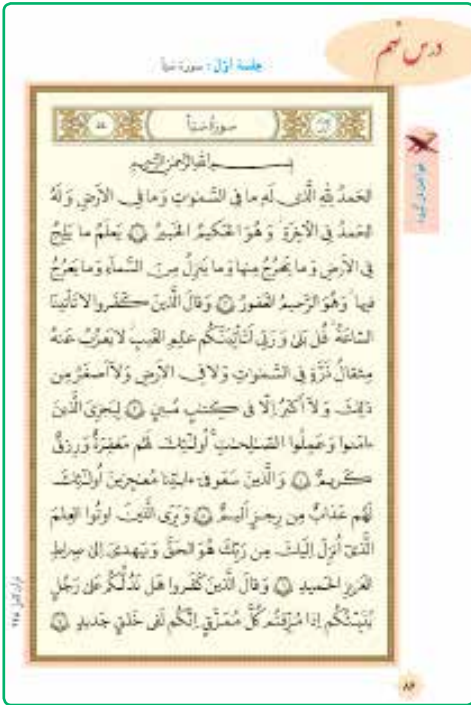 درس نهم
جلسهٔ اوّل : سورهٔ سبأ
سورة سبأ
بسم الله الرحمن الرحيم
اَلحَمدُ لِلّٰهِ الَّذي لَهُ ما فِي السَّمٰوٰتِ وَما فِي الاَرضِ وَلَهُ
الحَمدُ فِي الآخِرَةِ وَهُوَ الحَكيمُ الخَبيرُ ١ يَعلَمُ ما يَلِجُ
فِي الاَرضِ وَما يَخرُجُ مِنها وَما يَنزِلُ مِنَ السَّماءِ وَما يَعرُجُ
فيها وَهُوَ الرَّحيمُ الغَفورُ ٢ وَقالَ الَّذينَ كَفَروا لا تَأتينَا
السّاعَةُ قُل بَلىٰ وَرَبّي لَتَأتِيَنَّكُم عالِمِ الغَيبِ لا يَعزُبُ عَنهُ
مِثقالُ ذَرَّةٍ فِي السَّمٰوٰتِ وَلا فِي الاَرضِ وَلا اَصغَرُ مِن
ذٰلِكَ وَلا اَكبَرُ اِلّا في كِتٰبٍ مُبينٍ ٣ لِيَجزِيَ الَّذينَ
ءامَنوا وَعَمِلُوا الصّٰلِحٰتِ اُولٰئِكَ لَهُم مَغفِرَةٌ وَرِزقٌ
كَريمٌ ٤ وَالَّذينَ سَعَو في ءايٰتِنا مُعٰجِزينَ اُولٰئِكَ
لَهُم عَذابٌ مِن رِجزٍ اَليمٌ ٥ وَيَرَى الَّذينَ اوتُوا العِلمَ
الَّذي اُنزِلَ اِلَيكَ مِن رَبِّكَ هُوَ الحَقَّ وَيَهدي اِلىٰ صِراطِ
العَزيزِ الحَميدِ ٦ وَقالَ الَّذينَ كَفَروا هَل نَدُلُّكُم عَلىٰ رَجُلٍ
يُنَبِّئُكُم اِذا مُزِّقتُم كُلَّ مُمَزَّقٍ اِنَّكُم لَفي خَلقٍ جَديدٍ ٧